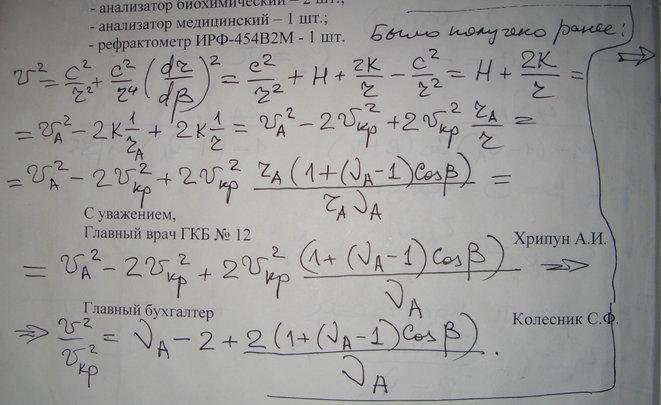 - анализатор биохимический – 2 шт.;
- анализатор медицинский – 1 шт.;
- рефрактометр ИРФ-454В2М - 1 шт.
Было получено ранее:
v² = c²/r² + c²/r⁴ (dr/dβ)² = c²/r² + H + 2K/r − c²/r² = H + 2K/r =
= v_A² − 2K 1/r_A + 2K 1/r = v_A² − 2v_кр² + 2v_кр² r_A/r =
= v_A² − 2v_кр² + 2v_кр² r_A(1+(ν_A−1)Cosβ)/(r_A ν_A) =
С уважением,
Главный врач ГКБ № 12
Хрипун А.И.
= v_A² − 2v_кр² + 2v_кр² (1+(ν_A−1)Cosβ)/ν_A ⇒
Главный бухгалтер
Колесник С.Ф.
⇒ v²/v_кр² = ν_A − 2 + 2(1+(ν_A−1)Cosβ)/ν_A .